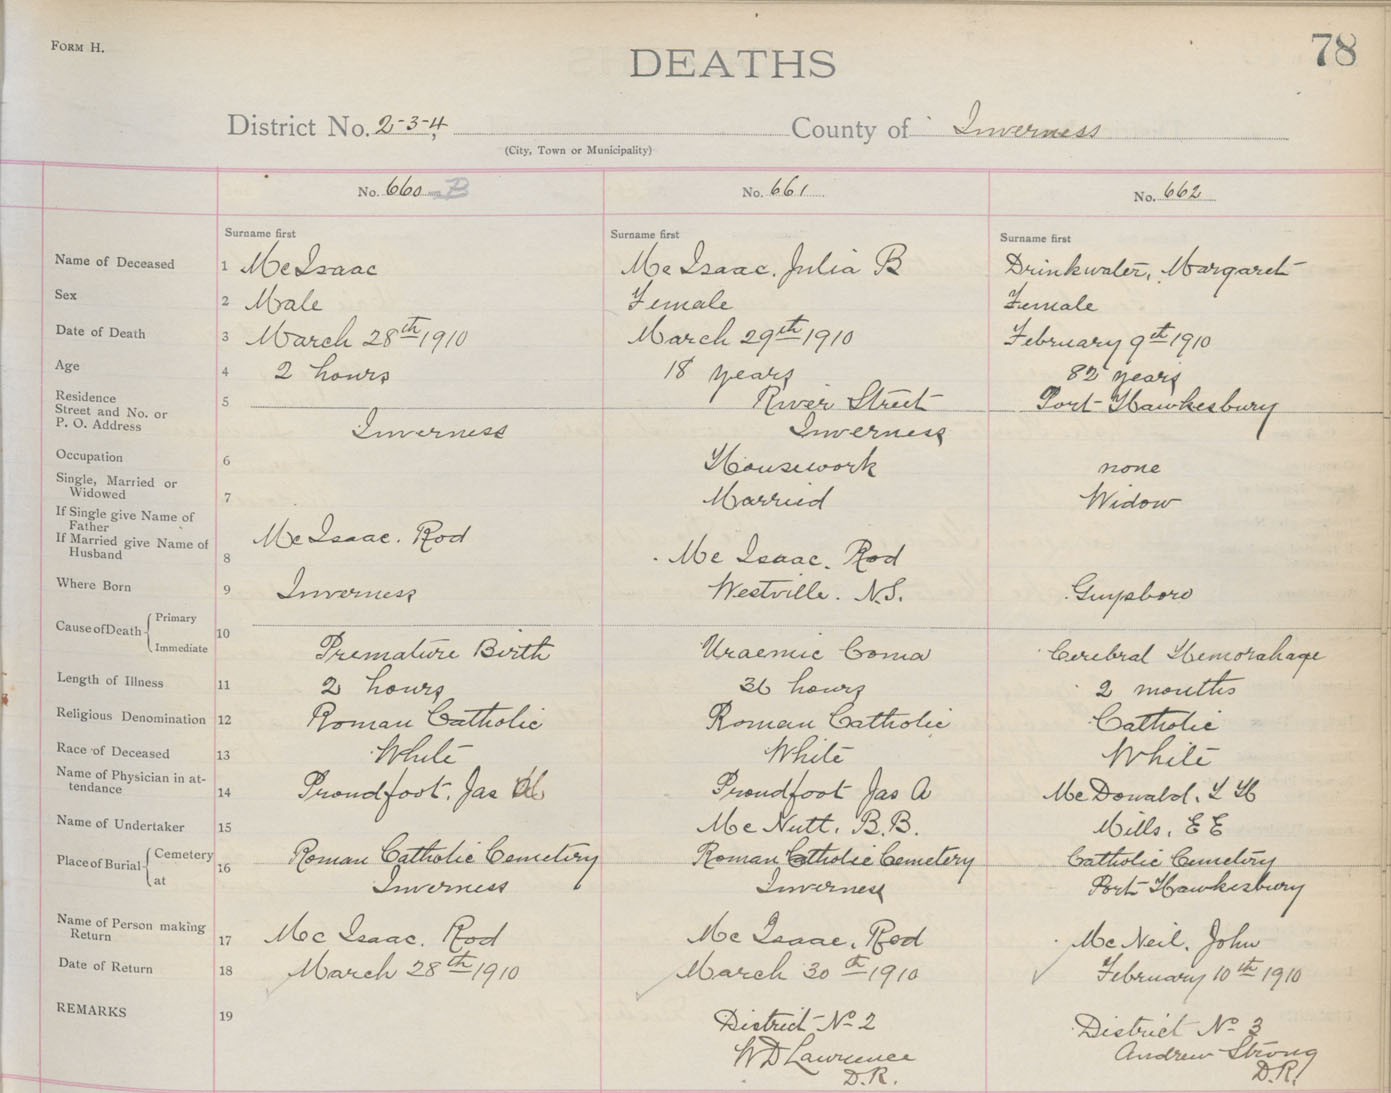 FORM H.
DEATHS
78
District No. 2-3-4, County of Inverness
(City, Town or Municipality)
No. 660 B No. 661 No. 662
Surname first Surname first Surname first
Name of Deceased 1 McIsaac Mc Isaac, Julia B Drinkwater, Margaret
Sex 2 Male Female Female
Date of Death 3 March 28th 1910 March 29th 1910 February 9th 1910
Age 4 2 hours 18 years 82 years
Residence
Street and No. or 5 River Street Port Hawkesbury
P. O. Address Inverness Inverness
Occupation 6 Housework none
Single, Married or
Widowed 7 Married Widow
If Single give Name of
Father McIsaac. Rod
If Married give Name of
Husband 8 Mc Isaac. Rod
Where Born 9 Inverness Westville. N.S. Guysboro
Cause of Death { Primary 10
Immediate Premature Birth Uraemic Coma Cerebral Hemorahage
Length of Illness 11 2 hours 36 hours 2 months
Religious Denomination 12 Roman Catholic Roman Catholic Catholic
Race of Deceased 13 White White White
Name of Physician in at-
tendance 14 Proudfoot, Jas Proudfoot Jas A McDonald, L H
Name of Undertaker 15 Mc Nutt, B.B. Mills, E E
Place of Burial { Cemetery 16 Roman Catholic Cemetery Roman Catholic Cemetery Catholic Cemetery
at Inverness Inverness Port Hawkesbury
Name of Person making
Return 17 Mc Isaac, Rod Mc Isaac, Rod McNeil, John
Date of Return 18 March 28th 1910 March 30th 1910 February 10th 1910
REMARKS 19 District No 2 District No 3
W D Lawrence Andrew Strong
D.R. D.R.